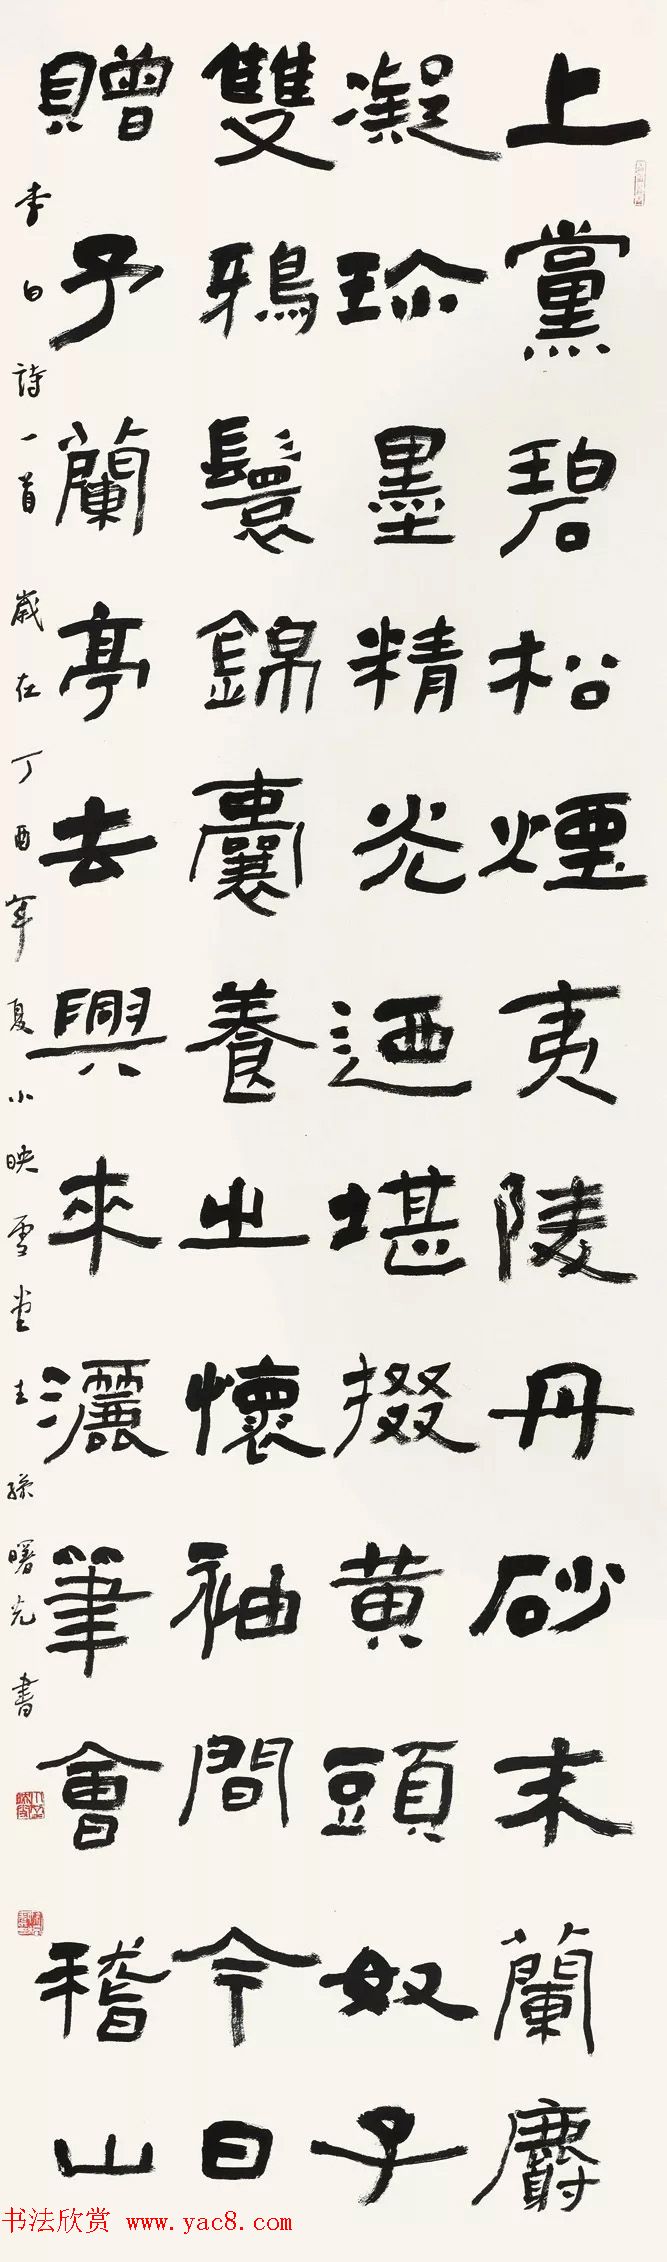 上黨碧松煙夷陵丹砂末蘭麝
凝珎墨精光迺堪掇黄頭奴子
雙鴉鬟錦囊養之懷袖間今日
贈予蘭亭去興來灑筆會稽山
李白詩一首 歲在丁酉年夏小映雪堂主孫曙光書
书法欣赏 www.yac8.com